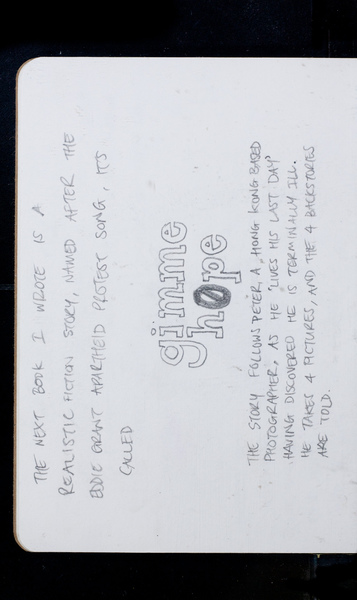 THE NEXT BOOK I WROTE IS A
REALISTIC FICTION STORY, NAMED AFTER THE
EDDIE GRANT APARTHEID PROTEST SONG, ITS
CALLED
gimme
hope
THE STORY FOLLOWS PETER, A HONG KONG BASED
PHOTOGRAPHER, AS HE 'LIVES HIS LAST DAY'
HAVING DISCOVERED HE IS TERMINALLY ILL.
HE TAKES 4 PICTURES, AND THE 4 BACKSTORIES
ARE TOLD.